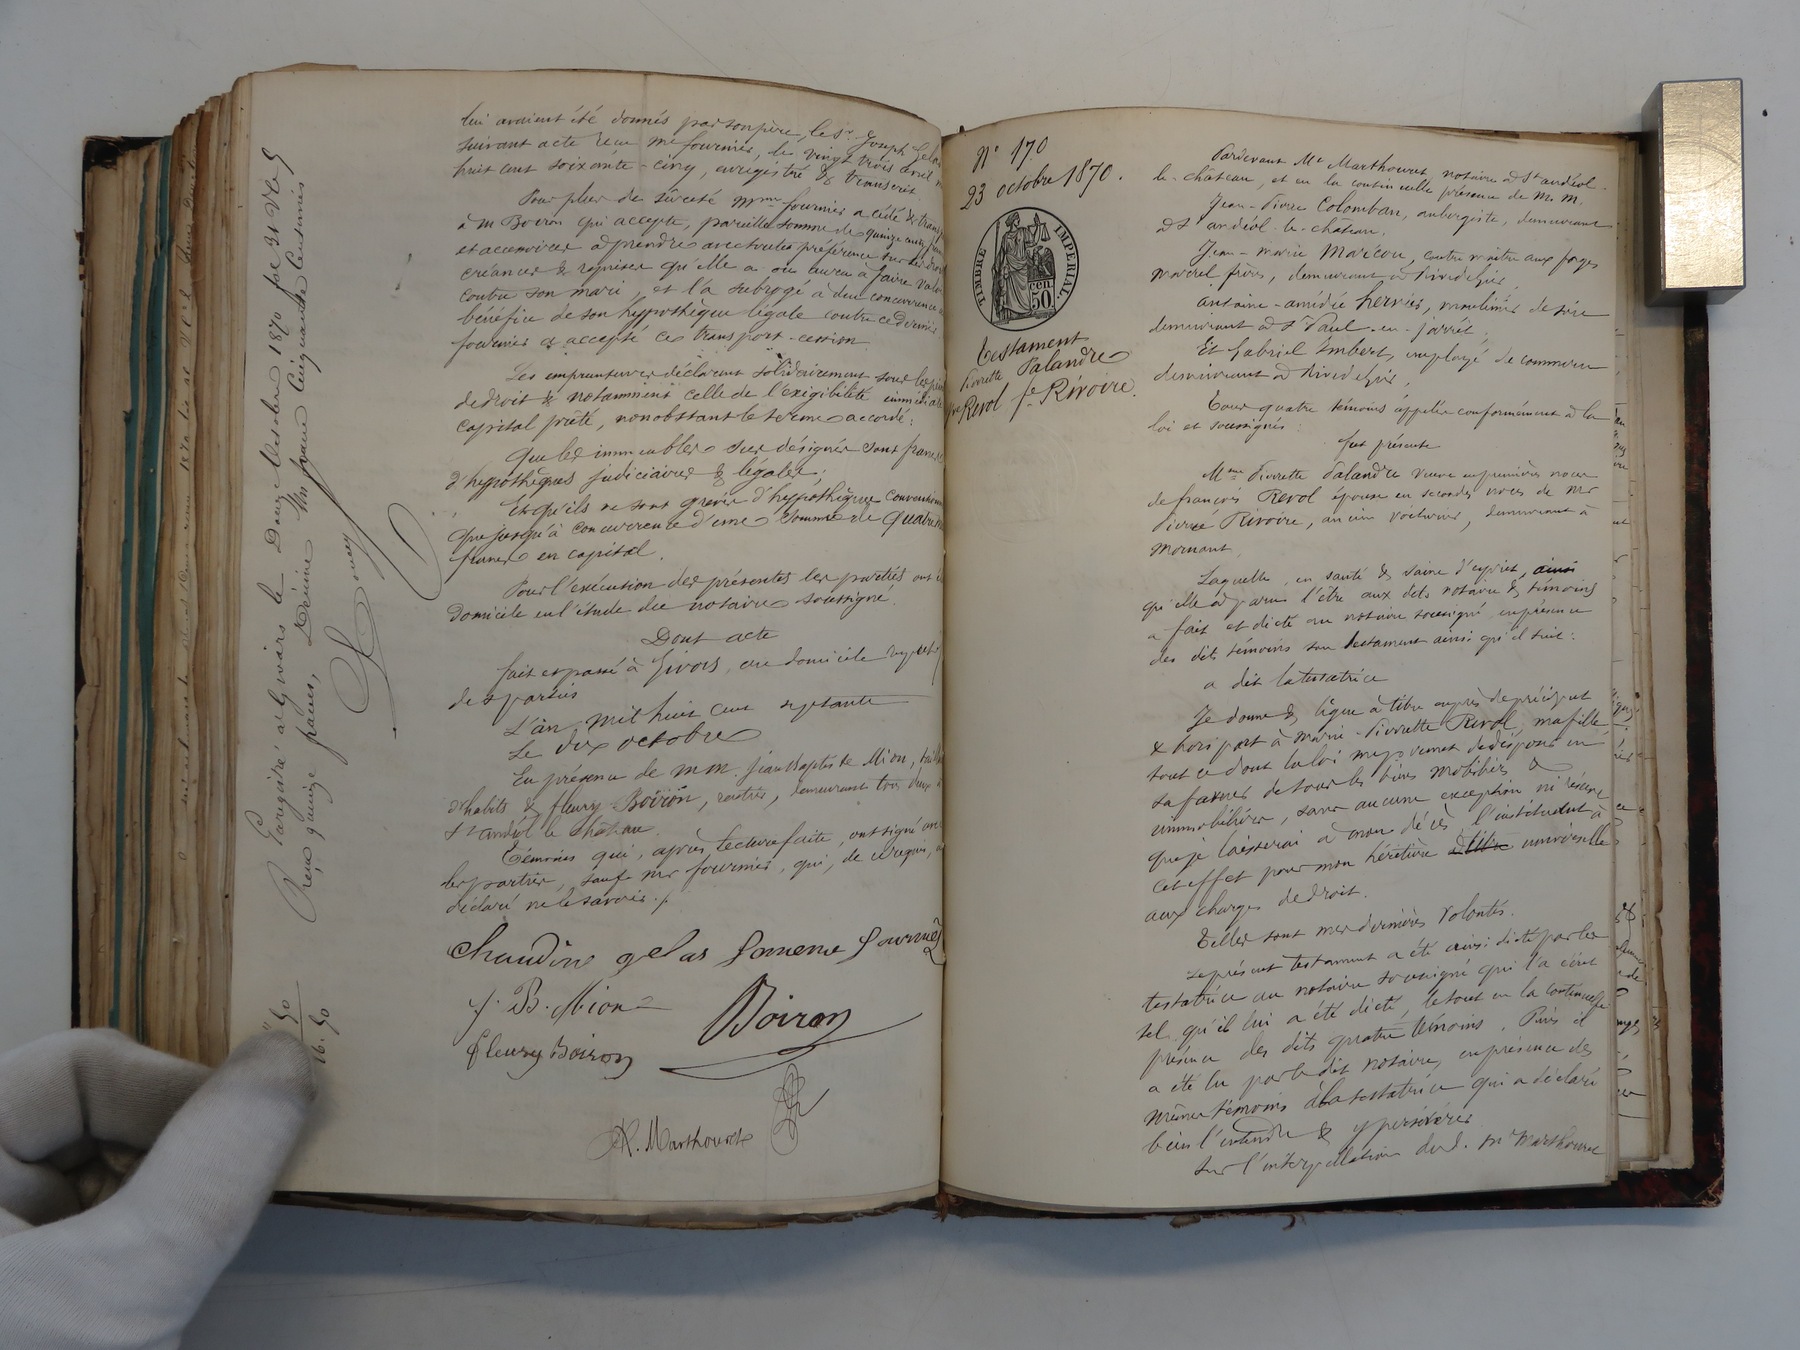 lui avaient été donnés par son père, le Sr Joseph Gelas
suivant acte reçu Me fournier, le vingt trois avril m
huit cent soixante-cinq, enrégistré & transcrit
Pour plus de sûreté Mme fournier a cédé & trans
à M Boiron qui accepte, pareille somme de quinze cents
et accessoires à prendre avec toute préférence sur les droits
créances & reprises qu'elle a ou aura à faire valoir
contre son mari, et l'a subrogé à due concurrence
bénéfice de son hypothèque légale contre ce dernier
fournier a accepté ce transport-cession
Les emprunteurs déclarent solidairement sous les peines
de droit & notamment celle de l'exigibilité immédiate
capital prêté, nonobstant le terme accordé:
Que les immeubles sus désignés sont francs
d'hypothèques judiciaires & légales;
Et qu'ils ne sont grevés d'hypothèque conventionn
que jusqu'à concurrence d'une somme de quatre
francs en capital.
Pour l'exécution des présentes les parties ont é
domicile en l'étude du notaire soussigné.
Dont acte
fait et passé à Givors, au domicile respectif
des parties
L'an mil huit cent septante
Le dix octobre
En présence de MM. Jean Baptiste Mion, tail
d'habits & fleury Boiron, rentier, demeurant tous deux à
St Andéol le Château.
Témoins qui, après lecture faite, ont signé avec
les parties, sauf Mr fournier, qui, de ce requis, a
déclaré ne le savoir./.
Chaudine gelas famene fournier
J. B. Mion
Boiron
fleury Boiron
K. Marthouret
Enregistré à Givors le Douze octobre 1870 fol 31 Vo C 9
Reçu quinze francs, Décime Un franc Cinquante Centimes
16.50
N° 170
23 octobre 1870.
TIMBRE IMPERIAL
50 cen.
Testament
Pierrette Palandre
Vve Revol fe Rivoire.
Pardevant Me Marthouret, notaire à St andéol
le-château, et en la continuelle présence de MM.
Jean-Pierre Colomban, aubergiste, demeurant
à St andéol-le-château.
Jean-Marie Marcou, contre maître aux forges
Marrel frères, demeurant à Rivedegier,
Antoine-amédée hervier, moulinier de soie
demeurant à St Paul-en-jarret,
Et Gabriel Imbert, employé de commerce
demeurant à Rivedegier,
Tous quatre témoins appelés conformément à la
loi et soussignés:
fut présente
Mme Pierrette Palandre veuve en premières noces
de françois Revol épouse en secondes noces de Mr
Pierre Rivoire, ancien voiturier, demeurant à
Mornant,
Laquelle, en santé & saine d'esprit, ainsi
qu'elle a paru l'être aux dits notaire & témoins
a fait et dicté au notaire soussigné en présence
des dits témoins son testament ainsi qu'il suit:
a dit la testatrice
Je donne & lègue à titre exprès de préciput
& hors part à Marie-Pierrette Revol, ma fille
tout ce dont la loi me permet de disposer en
sa faveur de tous les biens mobiliers &
immobiliers, sans aucune exception ni réserve
que je laisserai à mon décès l'instituant à
cet effet pour mon héritière à titre universelle
aux charges de droit.
Telles sont mes dernières volontés.
Le présent testament a été ainsi dicté par la
testatrice au notaire soussigné qui l'a écrit
tel qu'il lui a été dicté, le tout en la continuelle
présence des dits quatre témoins. Puis il
a été lu par le dit notaire, en présence des
mêmes témoins à la testatrice qui a déclaré
bien l'entendre & y persévérer
Sur l'interpellation du d. Me Marthouret